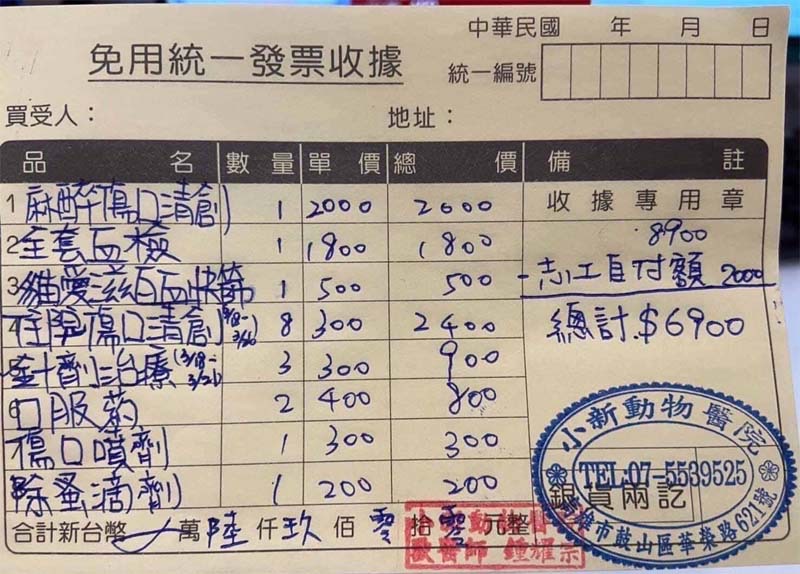 中華民國 年 月 日
免用統一發票收據
統一編號
買受人：
地址：
品名 數量 單價 總價 備註
收據專用章
1 麻醉傷口清創 1 2000 2000
2 全套血檢 1 1800 1800
3 貓愛滋白血快篩 1 500 500
4 住院傷口清創(3/18-3/26) 8 300 2400
5 針劑治療(3/18-3/21) 3 300 900
6 口服藥 2 400 800
傷口噴劑 1 300 300
除蚤滴劑 1 200 200
8900
-志工自付額 2000
總計$6900
小新動物醫院
TEL:07-5539525
高雄市鼓山區華榮路621號
銀貨兩訖
合計新台幣 萬陸仟玖佰零拾零元整
獸醫師 鍾耀宗